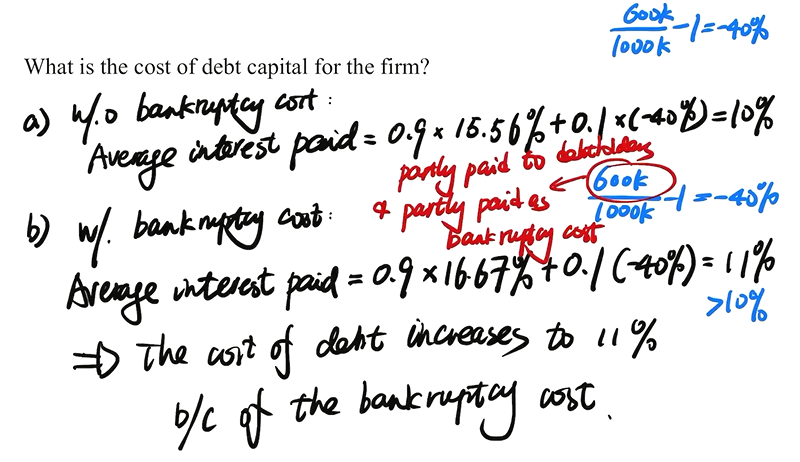 600k
1000k -1 = -40%
What is the cost of debt capital for the firm?
a) w/.o bankruptcy cost :
Average interest paid = 0.9 × 15.56% + 0.1 × (-40%) = 10%
partly paid to debtholders
& partly paid as
bankruptcy cost
600k
1000k -1 = -40%
b) w/. bankruptcy cost :
Average interest paid = 0.9 × 16.67% + 0.1 (-40%) = 11%
>10%
⇒ The cost of debt increases to 11%
b/c of the bankruptcy cost.